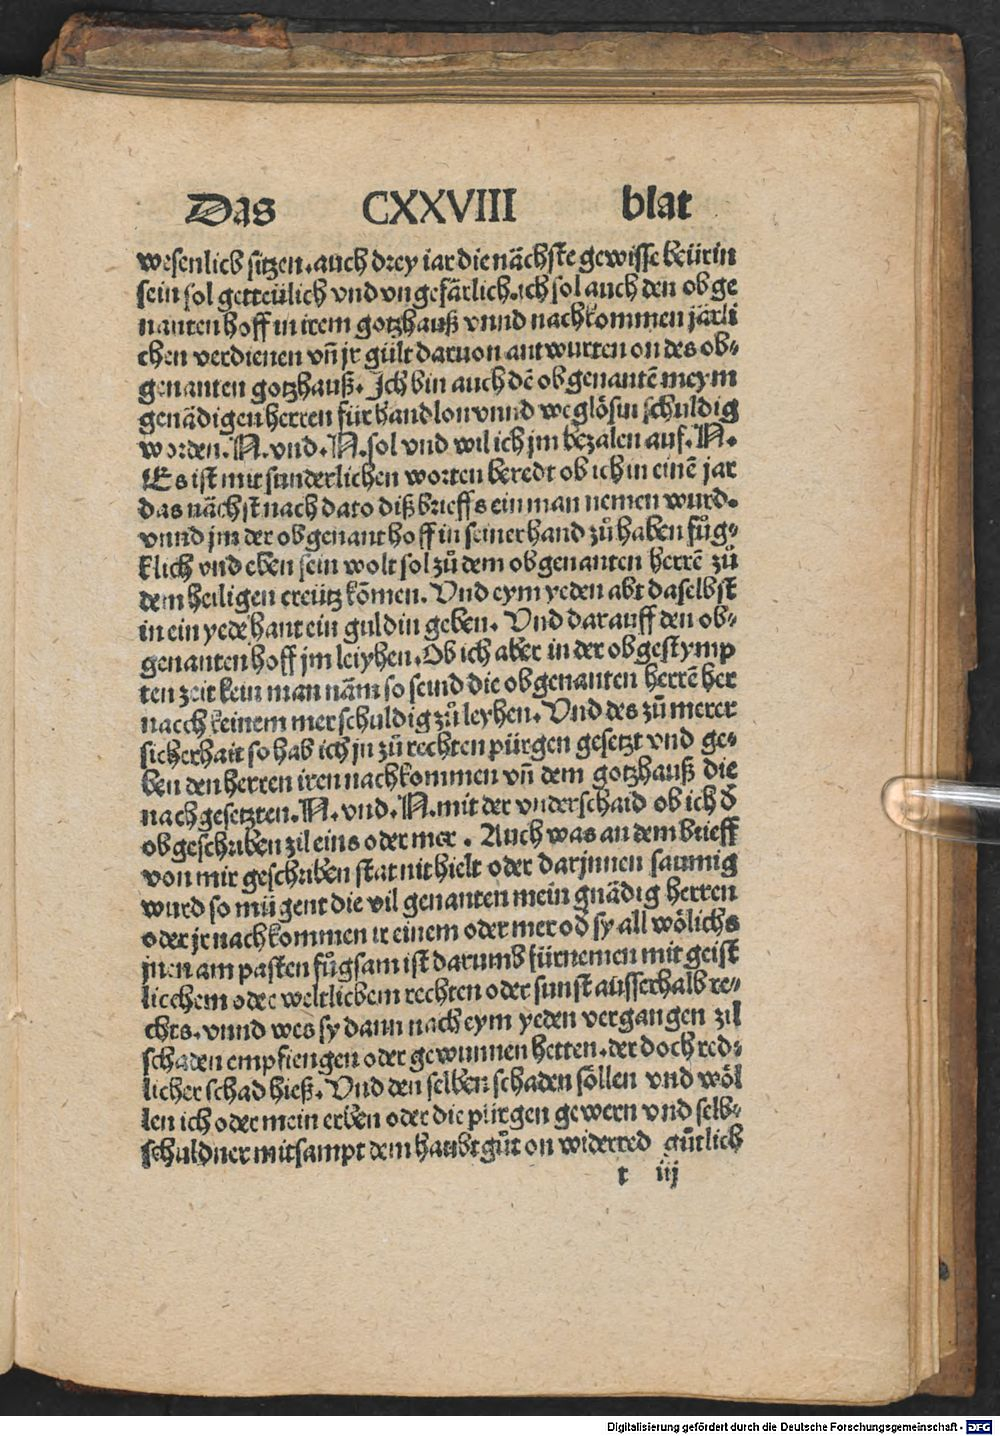 Das CXXVIII blat
wesenlich sitzen. auch drey iar die nächste gewisse beürin
sein sol getreülich vnd vngefärlich. ich sol auch den obge
nanten hoff in irem gotzhauß vnnd nachkommen järli
chen verdienen vn̄ jr gült daruon antwurten on des ob⸗
genanten gotzhauß. Ich bin auch dē obgenantē meym
genädigen herren für handlon vnnd weglösin schuldig
worden. N. vnd. N. sol vnd wil ich jm bezalen auf. N.
Es ist mit sunderlichen worten beredt ob ich in einē jar
das nächst nach dato diß brieffs ein man nemen wurd.
vnnd jm der obgenant hoff in seiner hand zů haben fůg⸗
klich vnd eben sein wolt sol zů dem obgenanten herrē zů
dem heiligen creütz kōmen. Vnd eym yeden abt daselbst
in ein yede hant ein guldin geben. Vnd darauff den ob⸗
genanten hoff jm leiyhen. Ob ich aber in der obgestymp
ten zeit kein man näm so seind die obgenanten herrē her
nacch keinem mer schuldig zů leyhen. Vnd des zů merer
sicherhait so hab ich jn zů rechten pürgen gesetzt vnd ge⸗
ben den herren iren nachkommen vn̄ dem gotzhauß die
nachgesetzten. N. vnd. N. mit der vnderschaid ob ich d̄
obgeschriben zil eins oder mer. Auch was an dem brieff
von mir geschriben stat nit hielt oder darjnnen saumig
wurd so mügent die vil genanten mein gnädig herren
oder jr nachkommen ir einem oder mer od̄ sy all wölichs
jnen am pasten fůgsam ist darumb fürnemen mit geist
licchem oder weltlichem rechten oder sunst ausserhalb re⸗
chts. vnnd wes sy dann nach eym yeden vergangen zil
schaden empfiengen oder gewunnen hetten. der doch red⸗
licher schad hieß. Vnd den selben schaden söllen vnd wöl
len ich oder mein erben oder die pürgen gewern vnd selb⸗
schuldner mitsampt dem haubtgůt on widerred gůtlich
t iij
Digitalisierung gefördert durch die Deutsche Forschungsgemeinschaft - DFG